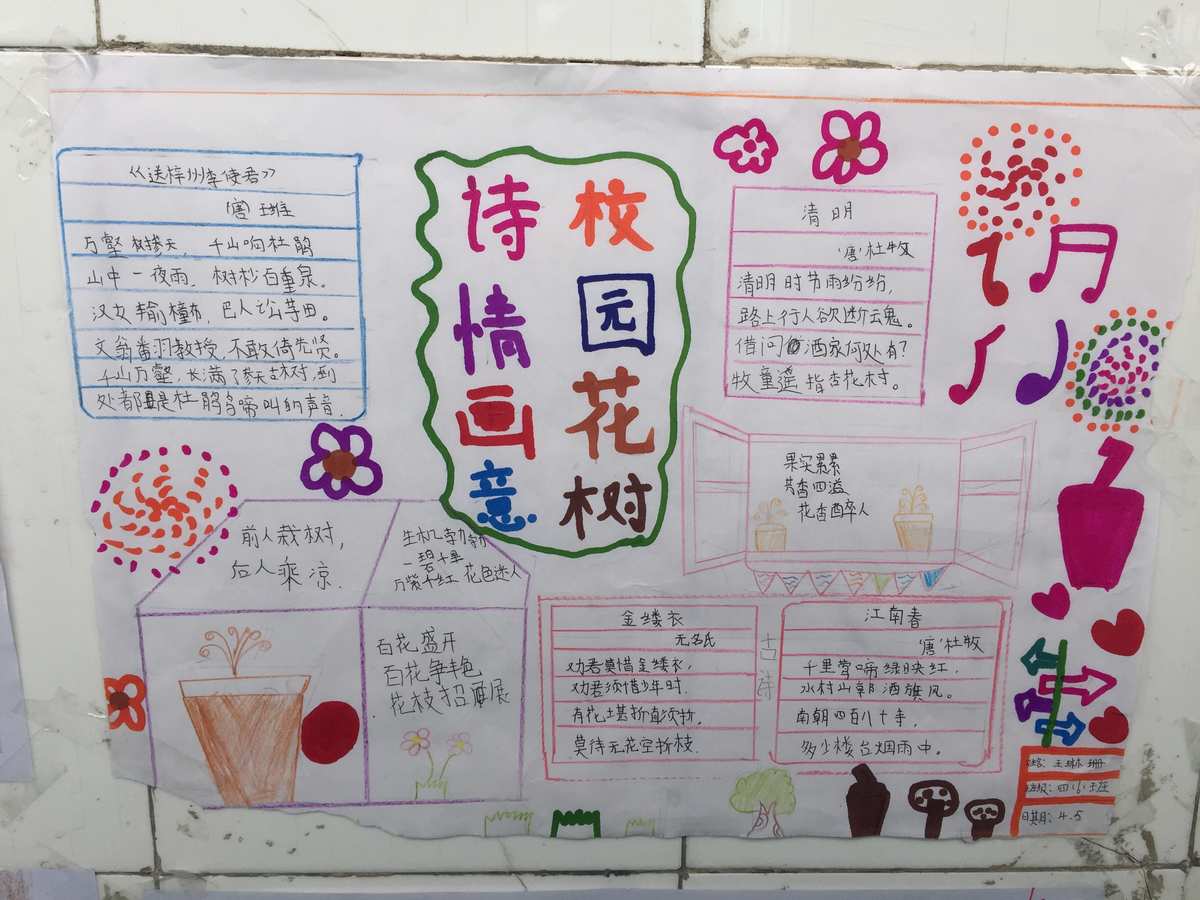 《送梓州李使君》
(唐)王维
万壑树参天，千山响杜鹃
山中一夜雨，树杪百重泉。
汉女输橦布，巴人讼芋田。
文翁翻羽教授，不敢倚先贤。
千山万壑，长满了参天大树，到
处都是杜鹃鸟啼叫的声音．
诗情画意
校园花树
清明
(唐)杜牧
清明时节雨纷纷，
路上行人欲断云鬼。
借问酒家何处有？
牧童遥指杏花村。
果实累累
芳香四溢
花香醉人
前人栽树，
后人乘凉．
生机勃勃
一碧千里
万紫千红 花色迷人
百花盛开
百花争艳
花枝招展
古诗
金缕衣
无名氏
劝君莫惜金缕衣，
劝君须惜少年时．
有花堪折直须折，
莫待无花空折枝．
江南春
(唐)杜牧
千里莺啼绿映红．
水村山郭酒旗风。
南朝四百八十寺，
多少楼台烟雨中。
姓名：王琳珊
班级：四(小)班
日期：4.5